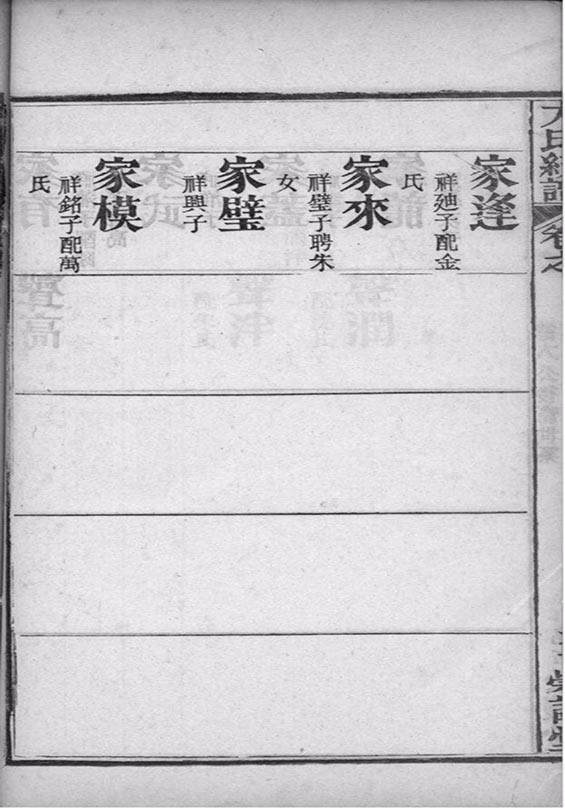 家逢
祥廸子配金
氏
家來
祥璧子聘朱
女
家璧
祥興子
家模
祥銘子配萬
氏